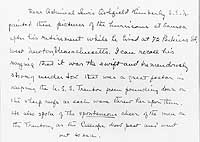 Rear Admiral Lewis Ashfield Kimberly U.S.N.
painted three pictures of the hurricane at Samoa
after his retirement while he lived at 72 Parkins St
West Newton, Massachusetts. I can recall his
saying that it was the swift and tremendously
strong under tow that was a great factor in
keeping the U.S.S. Trenton from pounding down on
the reef as each wave threw her upon them.
He also spoke of the spontaneous cheer of the men on
the Trenton as the Calliope went past and went
out to sea.